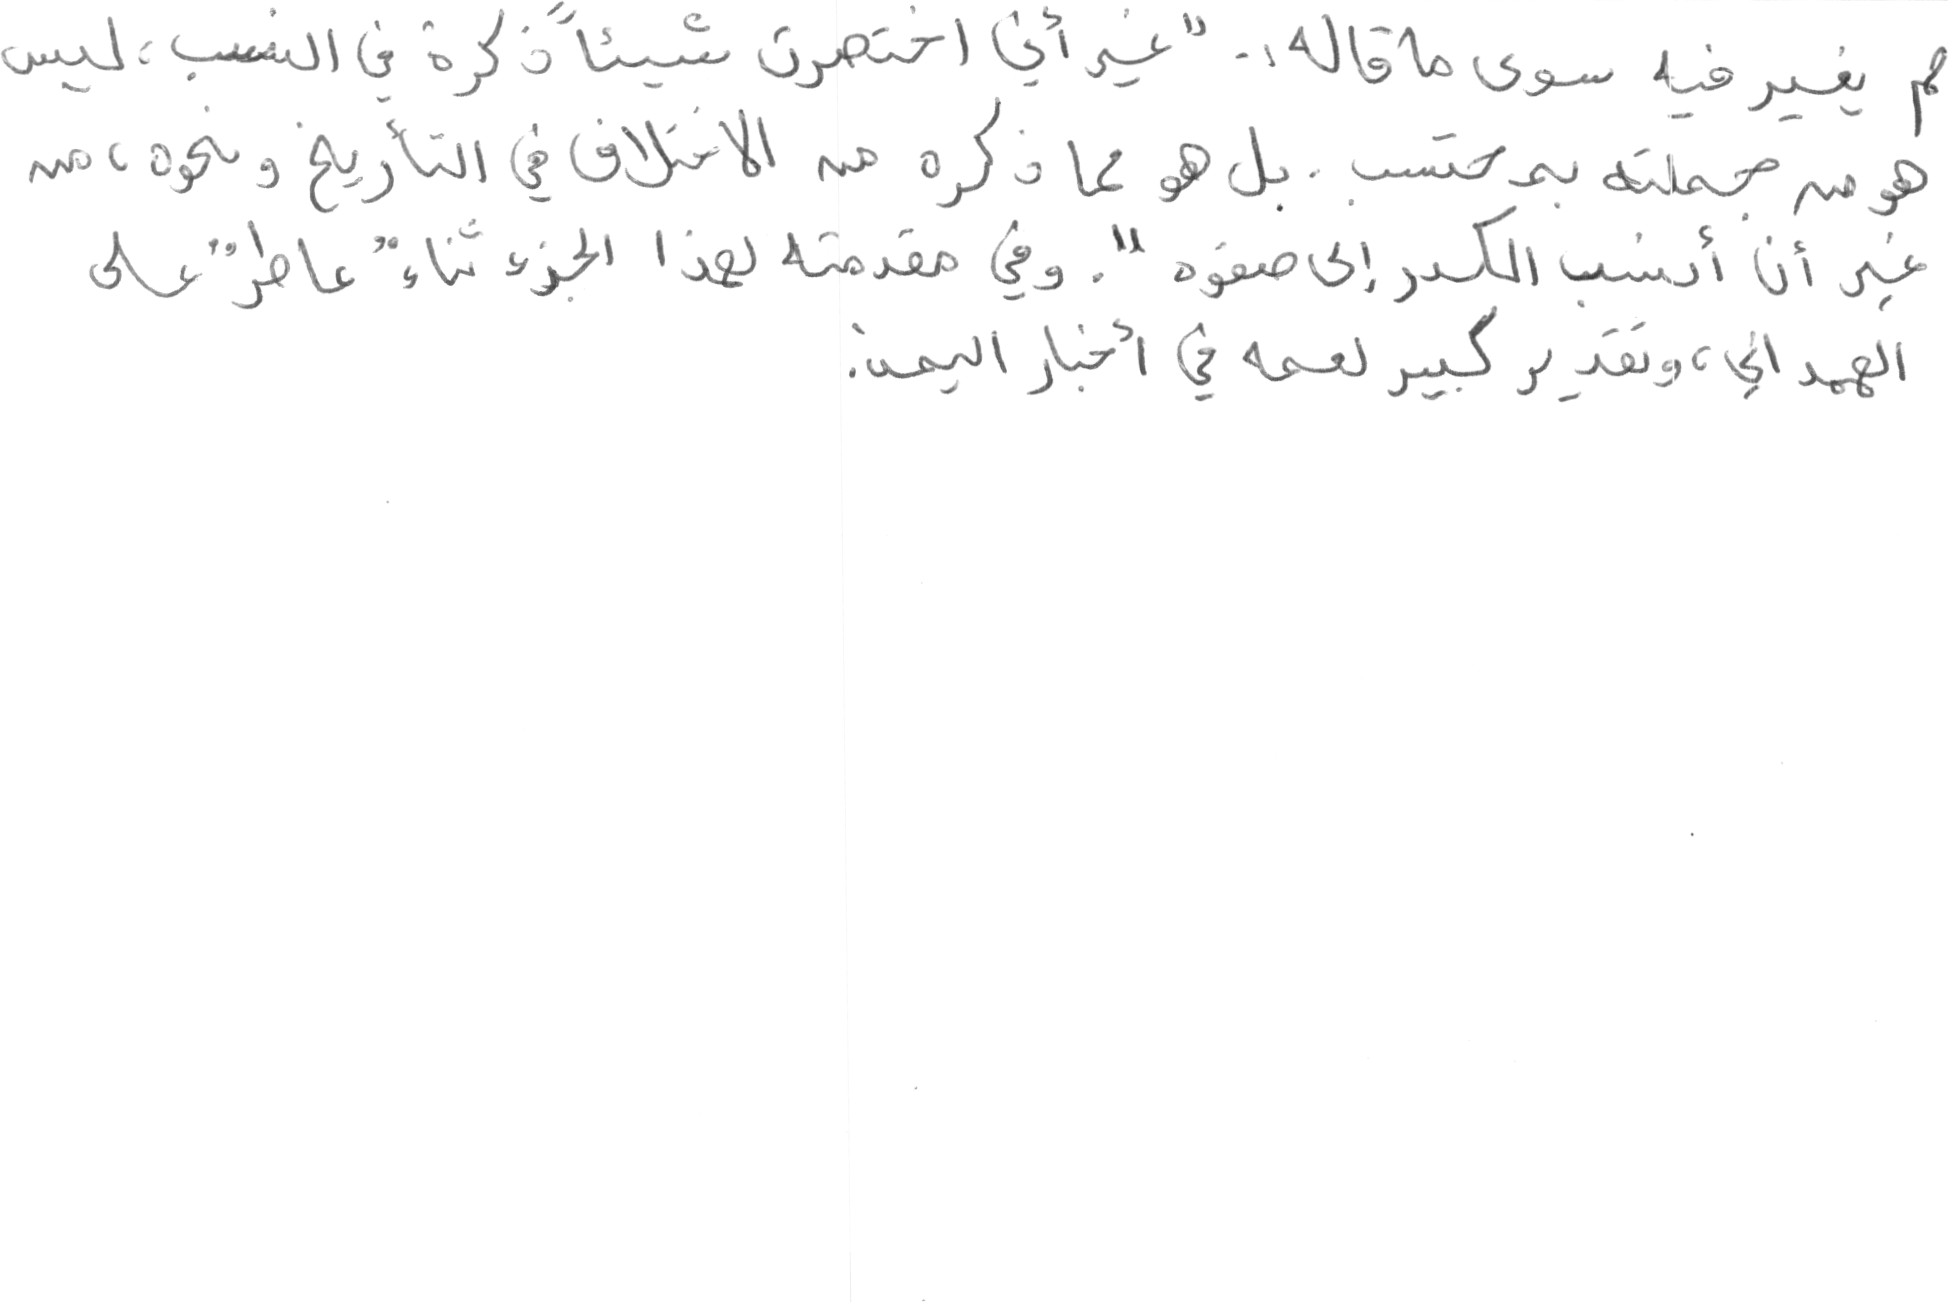 لم يغير فيه سوى ما قاله :- "غير أني اختصرت شيئاً ذكرة في النسب، ليس
هو من جملته بمحتسب. بل هو مما ذكره من الاختلاف في التأريخ ونحوه، من
غير أن أنسب الكدر إلى صفوه". وفي مقدمته لهذا الجزء ثناء "عاطر" على
الهمداني، وتقدير كبير لعمه في أخبار اليمن.